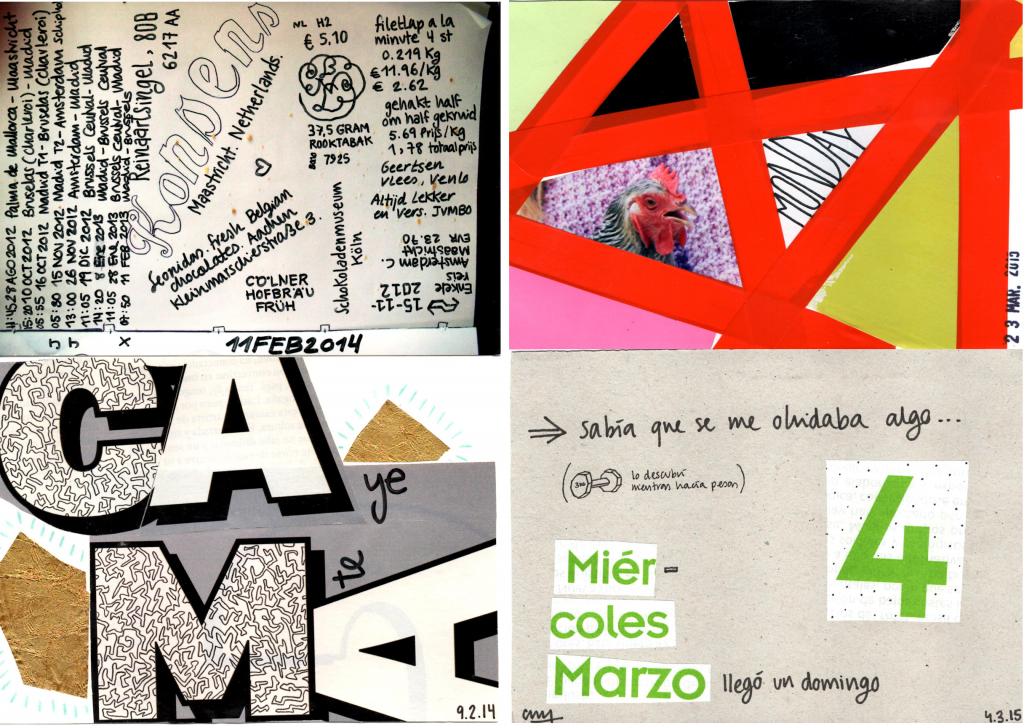 #:45 27 AGO 2012 Palma de Mallorca - Maastricht
15:20 10 OCT 2012 Bruselas (Charleroi) - Madrid
05:55 16 OCT 2012 Madrid T1 - Bruselas (Charleroi)
J 05:80 15 NOV 2012 Madrid T2 - Amsterdam Schiphol
J 13:00 26 NOV 2012 Amsterdam - Madrid
11:05 19 DIC 2012 Brussels Ceulval - Madrid
8 ENE 2013 Madrid - Brussels
11:05 28 ENE 2013 Brussels - Madrid
X 07:50 11 FEB 2013 Madrid - Brussels
Reinaartsingel, 80B
6217 AA
Konsens
Maastricht. Netherlands.
Leonidas. Fresh Belgian
chocolates. Aachen
Kleinmarschierstraße 3.
CÖLNER
HOFBRÄU
FRÜH
NL H2
€ 5.10
37,5 GRAM
ROOKTABAK
7925
Schokoladenmuseum
Köln
filetlap a la
minute 4 st
0.219 Kg
€ 11.96/Kg
€ 2.62
gehakt half
om half gekruid
5.69 Prijs/Kg
1,78 totaalprijs
Geertsen
Vlees, Venlo
Altijd Lekker
en vers. JVMBO
Enkele reis
Amsterdam C.
Maastricht
EVR 23.70
15-11-
2012
11FEB2014
MONDAY
23 MAR. 2015
CA
ye
te
MA
9.2.14
sabía que se me olvidaba algo...
(lo descubrí
mientras hacía pesas)
4
Miér-
coles
Marzo llegó un domingo
4.3.15